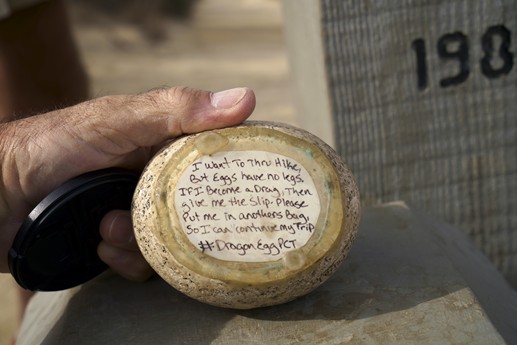 I Want To Thru Hike,
But Eggs have no legs.
If I Become a Drag, Then
give me the Slip. Please
Put me in anothers Bag
So I can continue my Trip
#DragonEggPCT
198